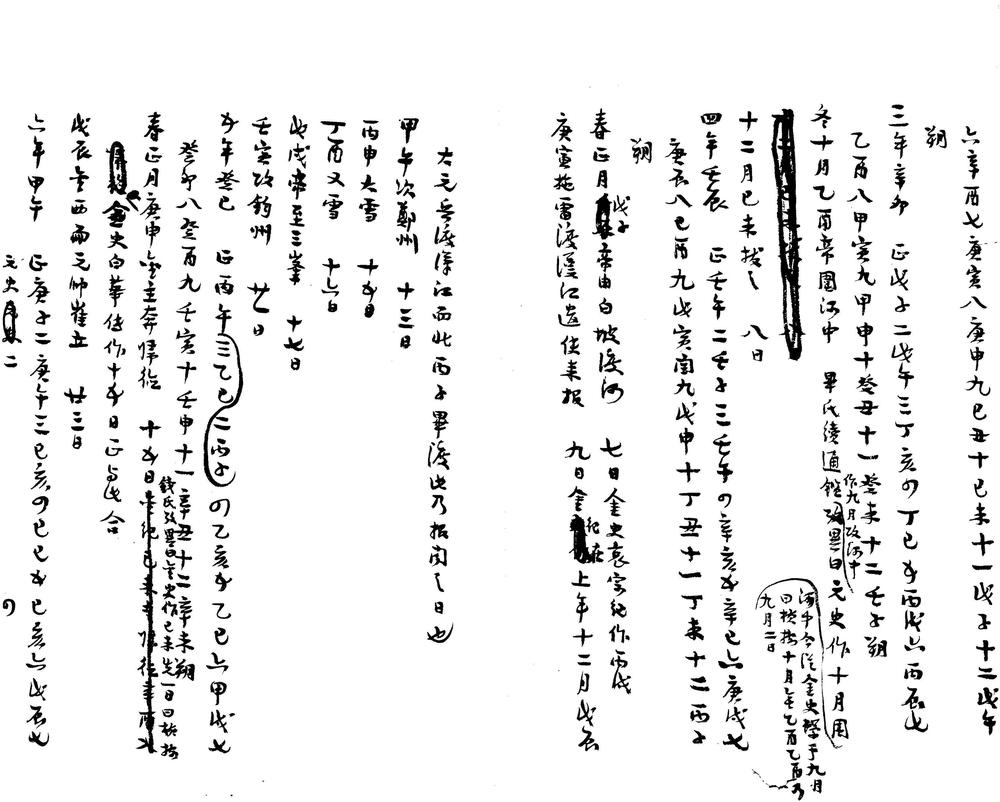 六辛酉七庚寅八庚申九己丑十己未十一戊子十二戊午
朔
三年辛卯 正戊子二戊午三丁亥四丁巳五丙戌六丙辰七
乙酉八甲寅九甲申十癸丑十一癸未十二壬子朔
冬十月乙酉帝圍河中 畢氏續通鑑攷異曰元史作十月圍
作九月攻河中
河中今從金史繫于九月
曰按十月無乙酉乙酉乃
九月二日
十二月己未拔之 八日
四年壬辰 正壬午二壬子三壬午四辛亥五辛巳六庚戌七
庚辰八己酉九戊寅閏九戊申十丁丑十一丁未十二丙子
朔
春正月戊子帝由白坡渡河 七日金史哀宗紀作丙戌
庚寅拖雷渡漢江遣使来报 九日金紀在上年十二月戊辰
大元兵渡漢江而北丙子畢渡此乃报聞之日也
甲午次鄭州 十三日
丙申大雪 十五日
丁酉又雪 十六日
戊戌帝至三峯 十七日
壬寅攻鈞州 廿一日
五年癸巳 正丙午三乙巳二丙子四乙亥五乙巳六甲戌七
癸卯八癸酉九壬寅十壬申十一辛丑十二辛未朔
春正月庚申金主奔歸德 十五日
錢氏攷異曰金史作己未先一日曰按
金史白華传作十五日正与此合
戊辰金西面元帥崔立 廿三日
六年甲午 正庚子二庚午三己亥四己巳五己亥六戊辰七
元史 二 四